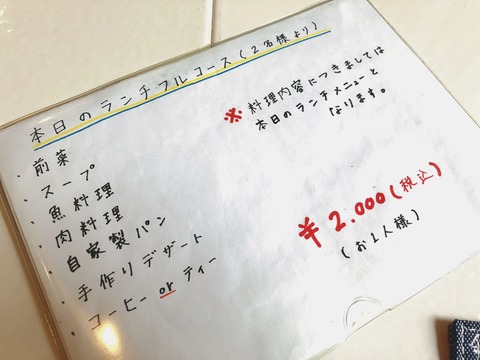 本日のランチフルコース(2名様より)
・前菜
・スープ
・魚料理
・肉料理
・自家製パン
・手作りデザート
・コーヒー or ティー
※料理内容につきましては
本日のランチメニューと
なります。
¥2.000(税込)
(お1人様)